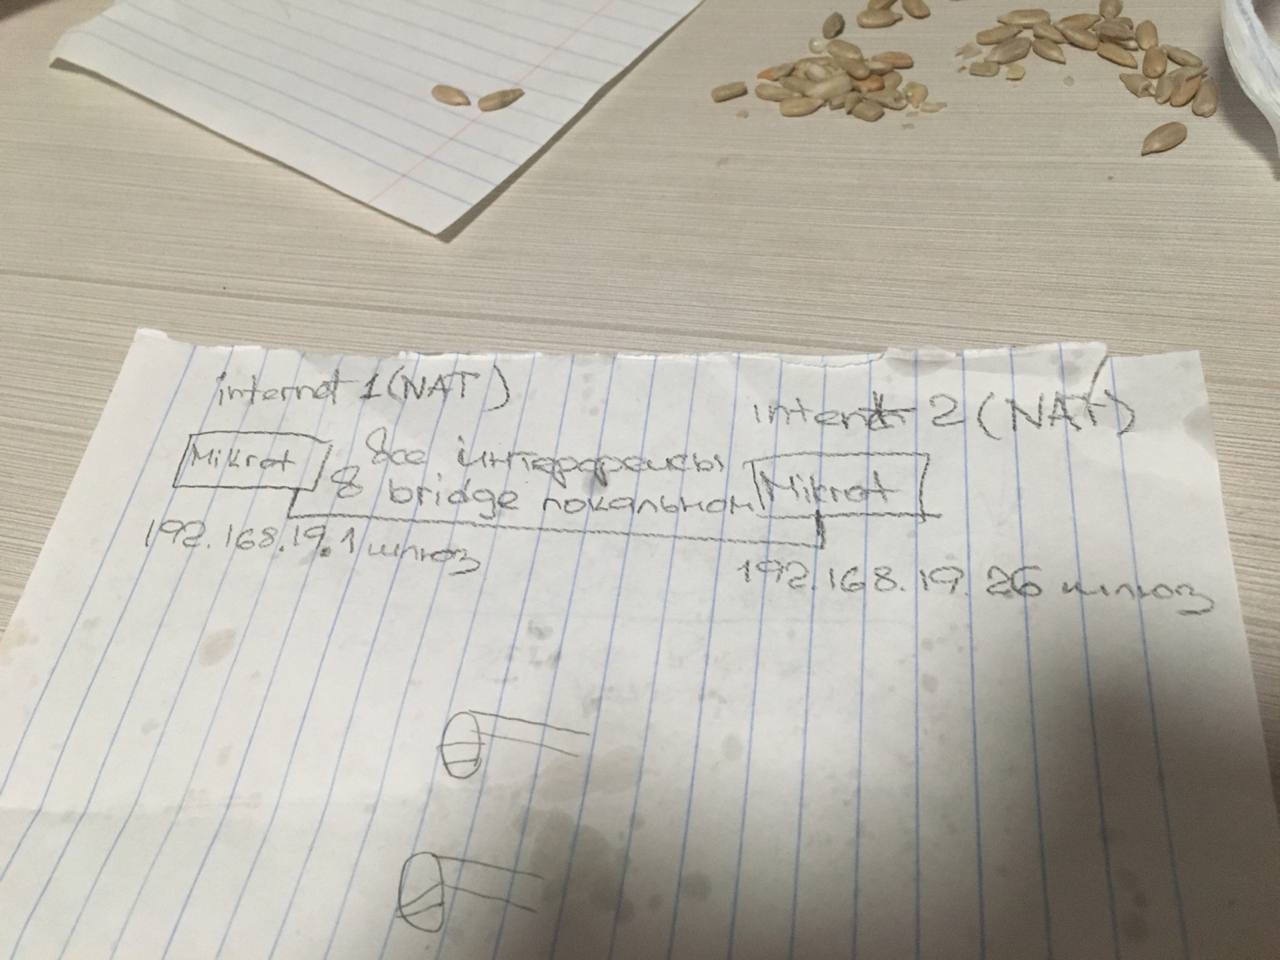 internet 1 (NAT)
internt 2 (NAT)
Mikrot
Все интерфейсы
в bridge локальном
Mikrot
192.168.19.1 шлюз
192.168.19.26 шлюз